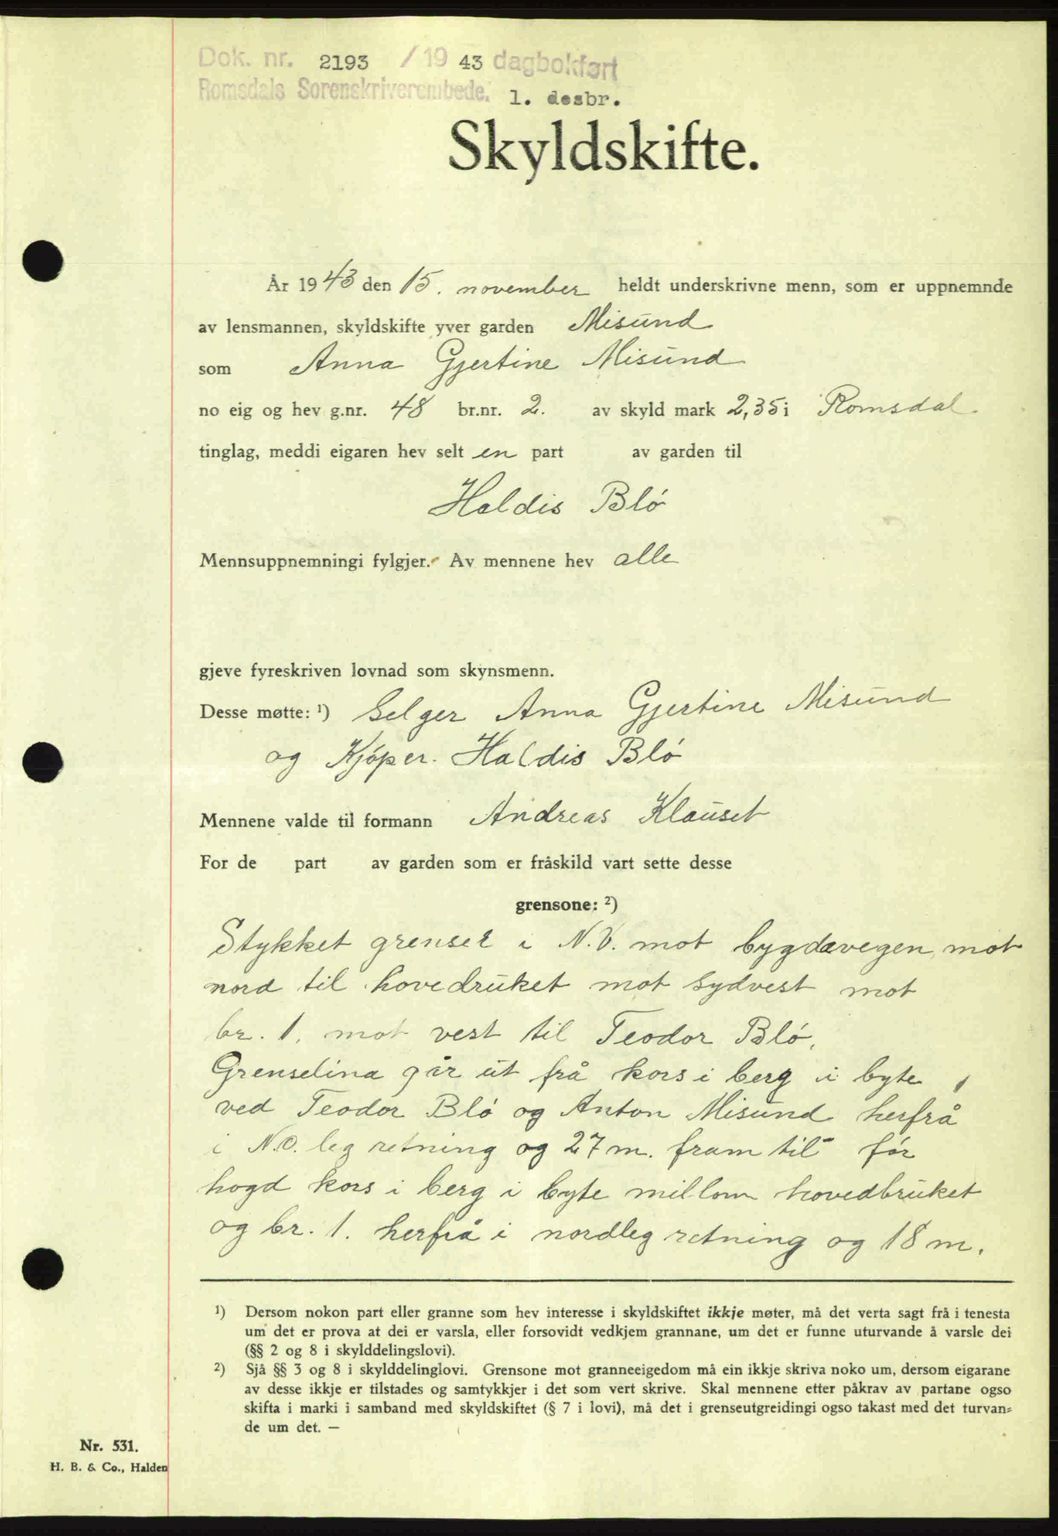 Dok. nr. 2193 / 19 43 dagbokført
Romsdals Sorenskriverembede. 1. desbr.
Skyldskifte.
År 1943 den 15. november heldt underskrivne menn, som er uppnemnde
av lensmannen, skyldskifte yver garden Misund
som Anna Gjertine Misund
no eig og hev g.nr. 48 br.nr. 2. av skyld mark 2,35 i Romsdal
tinglag, meddi eigaren hev selt en part av garden til
Haldis Blø
Mennsuppnemningi fylgjer. Av mennene hev alle
gjeve fyreskriven lovnad som skynsmenn.
Desse møtte: ¹) Selger Anna Gjertine Misund
og Kjøper. Haldis Blø
Mennene valde til formann Andreas Klauset
For de part av garden som er fråskild vart sette desse
grensone: ²)
Stykket grenser i N.V. mot bygdavegen, mot
nord til hovedruket mot sydvest mot
br. 1. mot vest til Teodor Blø.
Grenselina går ut frå kors i berg i byte
ved Teodor Blø og Anton Misund herfrå
i N.O. leg retning og 27 m. fram til før
hogd kors i berg i byte millom hovedbruket
og br. 1. herfrå i nordleg retning og 18 m.
¹) Dersom nokon part eller granne som hev interesse i skyldskiftet ikkje møter, må det verta sagt frå i tenesta
um det er prova at dei er varsla, eller forsovidt vedkjem grannane, um det er funne uturvande å varsle dei
(§§ 2 og 8 i skylddelingslovi).
²) Sjå §§ 3 og 8 i skylddelinglovi. Grensone mot granneeigedom må ein ikkje skriva noko um, dersom eigarane
av desse ikkje er tilstades og samtykkjer i det som vert skrive. Skal mennene etter påkrav av partane ogso
skifta i marki i samband med skyldskiftet (§ 7 i lovi), må det i grenseutgreidingi ogso takast med det turvan=
de um det. —
Nr. 531.
H. B. & Co., Halden